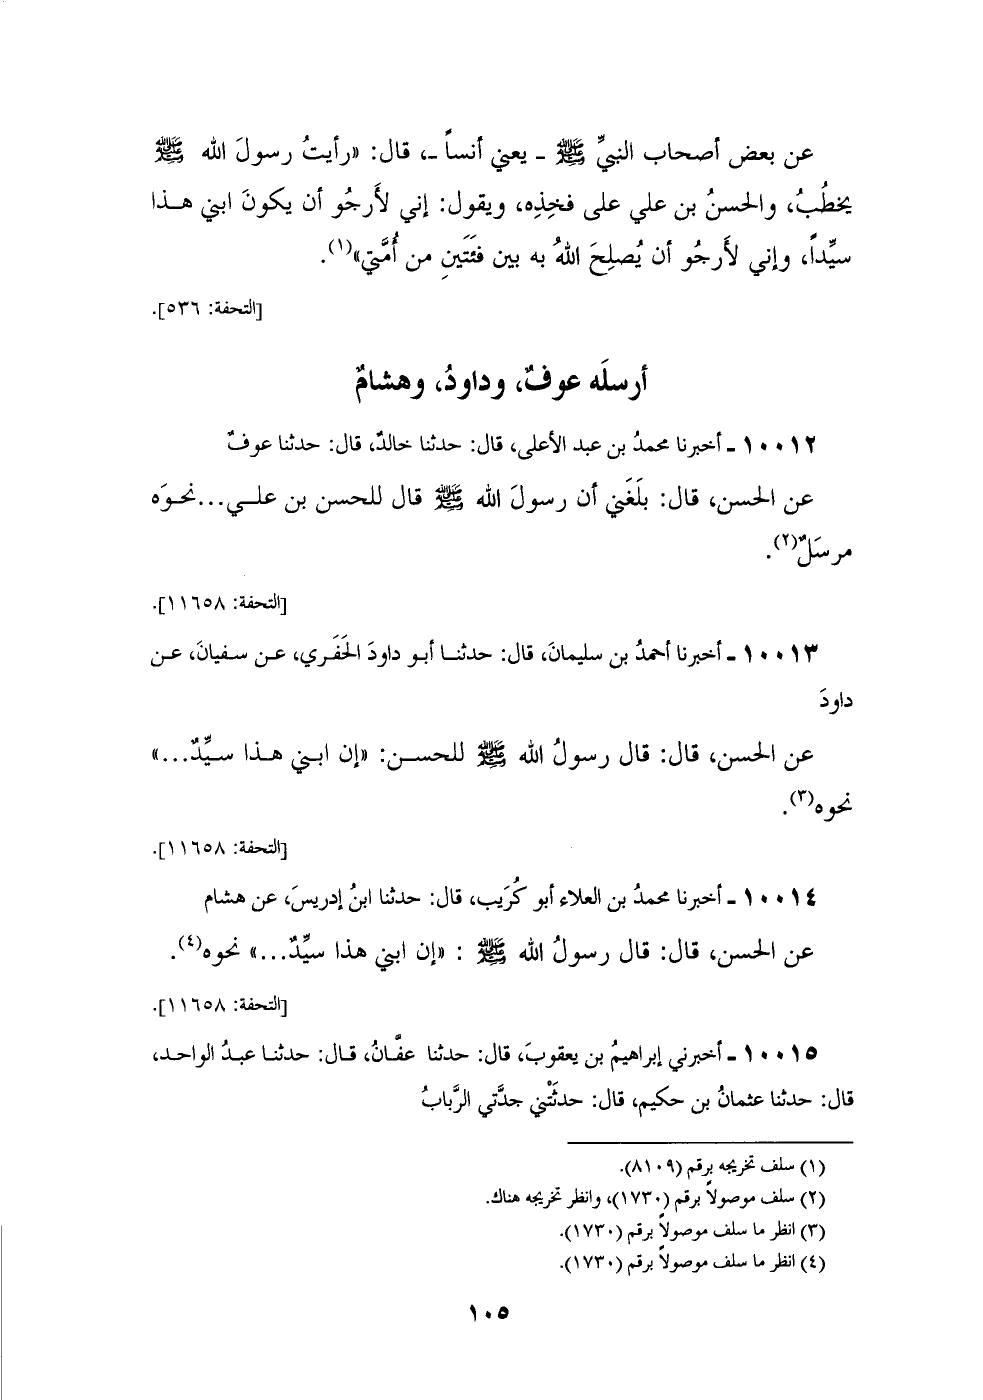 عن بعض أصحاب النبيِّ ﷺ ـ يعني أنساً ـ، قال: «رأيتُ رسولَ الله ﷺ
يخطُبُ، والحسنُ بن علي على فخِذِه، ويقول: إني لأَرجُو أن يكونَ ابني هـذا
سيِّداً، وإني لأَرجُو أن يُصلِحَ اللهُ به بين فئَتَينِ من أُمَّتي»(١).
[التحفة: ٥٣٦].
أرسلَه عوفٌ، وداودُ، وهشامٌ
١٠٠١٢ ـ أخبرنا محمدُ بن عبد الأعلى، قال: حدثنا خالدٌ، قال: حدثنا عوفٌ
عن الحسن، قال: بلَغَني أن رسولَ الله ﷺ قال للحسن بن علـي...نحـوَه
مرسَلٌ(٢).
[التحفة: ١١٦٥٨].
١٠٠١٣ ـ أخبرنا أحمدُ بن سليمانَ، قال: حدثنـا أبـو داودَ الحَفَـري، عـن سـفيانَ، عـن
داودَ
عن الحسن، قال: قال رسولُ الله ﷺ للحسـن: «إن ابـني هـذا سـيِّدٌ...»
نحوه(٣).
[التحفة: ١١٦٥٨].
١٠٠١٤ ـ أخبرنا محمدُ بن العلاء أبو كُرَيب، قال: حدثنا ابنُ إدريسَ، عن هشام
عن الحسن، قال: قال رسولُ الله ﷺ : «إن ابني هذا سيِّدٌ...» نحوه(٤).
[التحفة: ١١٦٥٨].
١٠٠١٥ ـ أخبرني إبراهيمُ بن يعقوبَ، قال: حدثنا عفَّانُ، قـال: حدثنـا عبـدُ الواحـد،
قال: حدثنا عثمانُ بن حكيم، قال: حدثَتْني جدَّتي الرَّبابُ
(١) سلف تخريجه برقم (٨١٠٩).
(٢) سلف موصولاً برقم (١٧٣٠)، وانظر تخريجه هناك.
(٣) انظر ما سلف موصولاً برقم (١٧٣٠).
(٤) انظر ما سلف موصولاً برقم (١٧٣٠).
١٠٥